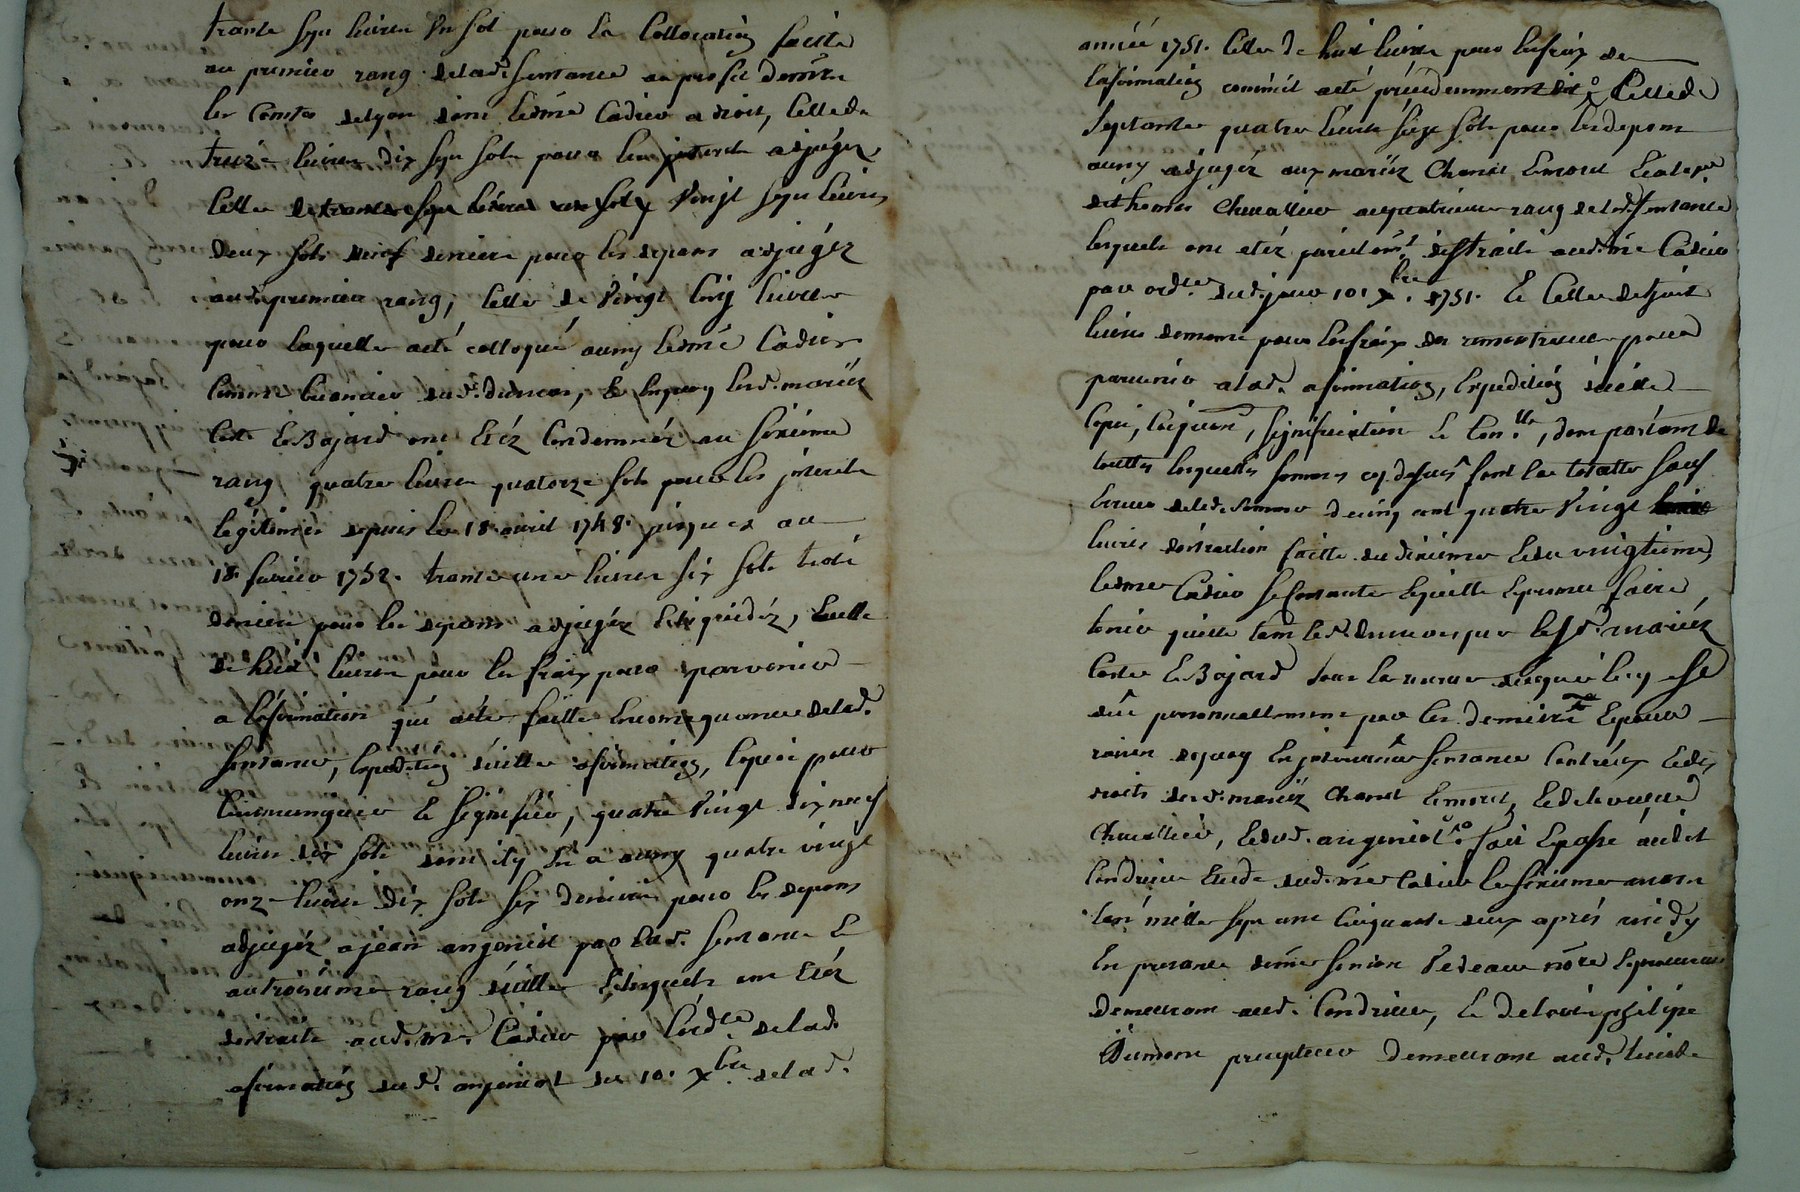 trante sept livres un sol pour la collocation faitte
au premier rang de lad. sentance au profit de mrs
les Comtes de Lyon dont led. me Cadier a droit, celle de
treize livres dix sept sols pour les interets adjugés
celle de trante sept livres un sol vingt sept livres
deux sols neuf deniers pour les depans adjugés
aud. premier rang, celle de vingt cinq livres
pour laquelle a eté colloqué aussy led. me Cadier
comme creancier dud. et en quoy lesd. mariés
Coste et Bajard ont etéz condemnés au sixieme
rang quatre livres quatorze sols pour les interets
legitimes depuis le 18 avril 1748 jusques au
18 fevrier 1752. trante une livres six sols trois
deniers pour les depans adjugés et liquidéz, celle
de huit livres pour les fraix pour parvenir
a l'afirmation qui a eté faitte en consequance de lad.
sentance, expedition d'icelle afirmation, copie pour
communiquer et signifier, quatre vingt dix neuf
livres dix sols dont il y en a aussy quatre vingt
onze livres dix sols six deniers pour les depans
adjugés a jean angeniol par lad. sentance et
au troisieme rang d'icelle et lesquels ont etéz
distraits aud. me Cadier par l'ord.ce de lad.
afirmation dud. angeniol du 10. xbre de lad.
année 1751. celle de huit livres pour les fraix de
l'afirmation comme il a eté précédemment dit celle de
septante quatre livres seize sols pour les depans
aussy adjugés aux mariés Chanut Emoret et a la ve
de thomas Chevallier au quatrieme rang de lad. sentance
lesquels ont etéz pareillemt distraits aud. me Cadier
par ord.ce dud. jour 10. xbre 1751. et celle de huit
livres de meme pour les fraix des remontrances pour
parvenir a lad. afirmation, expedition d'icelle
copie, signification et con.lle, dont partant de
touttes lesquelles sommes cy dessus font la totalle sauf
erreur de lad. somme de cinq cent quatre vingt
livres distraction faitte du dixieme et du vingtieme,
led. me Cadier se contante et quitte et promet faire
tenir quitte tant led. que lesd. mariés
Coste et Bajard sous la reserve de ce qui luy est
dû personnellement par les derniers et pour
raison dequoy en sentance contr'eux et des
droits desd. mariés Chanut Emoret, et de la veuve
Chevallier, et dud. angeniol. fait et passé audit
Condrieu etude dud. me Cadier le sixieme mars
l'an mille sept cent cinquante deux après midy
en presance de me simon Vedeau nore et procureur
demeurant aud. Condrieu, et de Louis philipe
Dumont precepteur demeurant aud. lieu de